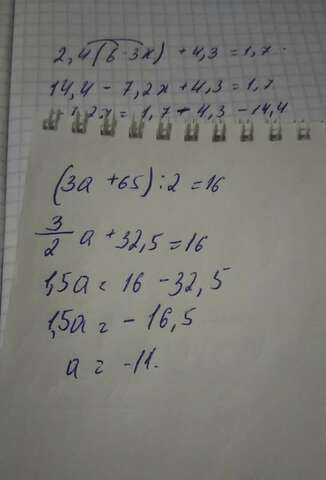 2,4(6-3x) + 4,3 = 1,7
14,4 - 7,2x + 4,3 = 1,7
7,2x = 1,7 - 4,3 - 14,4
(3a + 65) : 2 = 16
3/2 a + 32,5 = 16
1,5a = 16 - 32,5
1,5a = - 16,5
a = -11.